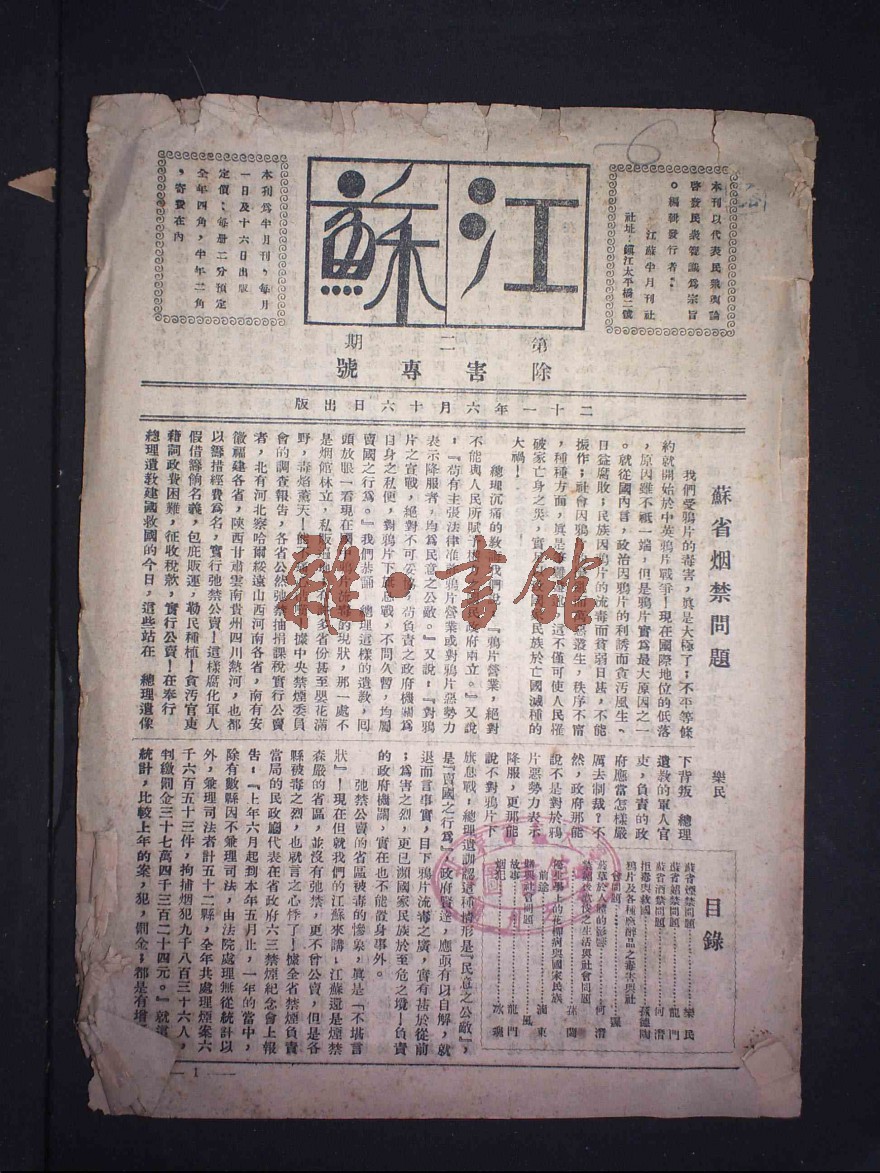 本刊以代表民衆輿論
啓發民衆智識爲宗旨
。編輯發行者:
江蘇半月刊社
社址:鎮江太平橋二號
江蘇
本刊爲半月刊,每月
一日及十六日出版
定價:每册二分預定
全年四角,半年二角
,寄費在內
第二期
除害專號
二十一年六月十六日出版
蘇省烟禁問題
樂民
我們受鴉片的毒害,眞是大極了;不平等條
約就開始於中英鴉片戰爭!現在國際地位的低落
,原因雖不祇一端,但是鴉片實爲最大原因之一
。就從國內言,政治因鴉片的利誘而貪汚風生、
日益腐敗;民族因鴉片的流毒而貧弱日甚,不能
振作;社會因鴉片
叢生,秩序不甯
,種種方面,眞是
這不僅可使人民罹
破家亡身之災,實
民族於亡國滅種的
大禍!
總理沉痛的敎
我們說:『鴉片營業,絕對
不能與人民所賦予
民政府兩立。』又說
;『苟有主張法律准許鴉片營業或對鴉片惡勢力
表示降服者,均爲民意之公敵。』又說:『對鴉
片之宣戰,絕對不可妥協,苟負責之政府機關爲
自身之私便,對鴉片下旗息戰,不問久暫,均屬
賣國之行爲。』我們恭誦 總理這樣的遺敎,囘
頭放眼一看現在國內鴉片流毒的現狀,那一處不
是烟館林立,私販
多省份甚至罌花滿
野,毒焰薰天!
據中央禁煙委員
會的調查報告,各省公然弛禁抽捐課稅實行公賣
者,北有河北察哈爾綏遠山西河南各省,南有安
徽福建各省,陝西甘肅雲南貴州四川熱河,也都
以籌措經費爲名,實行弛禁公賣!這樣腐化軍人
假借籌餉名義,包庇販運,勒民種植!貪汚官吏
藉詞政費困難,征收稅款,實行公賣!在奉行
總理遺敎建國救國的今日,這些站在 總理遺像
下背叛 總理
遺敎的軍人官
吏,負責的政
府應當怎樣嚴
厲去制裁?不
然,政府那能
說不是對於鴉
片惡勢力表示
降服,更那能
說不對鴉片下
旗息戰,總理遺訓認這種情形是『民意之公敵』,
是『賣國之行爲』政府賢達,應萌有以自解,就
退而言事實,目下鴉片流毒之廣,實有甚於從前
;爲害之烈,更已瀕國家民族於至危之境!負責
的政府機關,實在也不能置身事外。
弛禁公賣的省區被毒的慘象,眞是「不堪言
狀」!現在但就我們的江蘇來講,江蘇還是煙禁
森嚴的省區,並沒有弛禁,更不曾公賣,但是各
縣被毒之烈,也就言之心悸了!據全省禁煙負責
當局的民政廳代表在省政府六三禁煙紀念會上報
告:『上年六月起到本年五月止,一年的當中,
除有數縣因不兼理司法,由法院處理無從統計以
外,兼理司法者計五十二縣,全年共處理煙案六
千六百五十三件,拘捕烟犯九千八百三十六人,
判繳罰金三十七萬四千三百二十四元。』就這
統計,比較上年的案,犯,罰金;都是有增
目錄
蘇省煙禁問題 樂民
蘇省娼禁問題 龍門
蘇省酒禁問題 何澘
拒毒與救國 孫德陶
鴉片及各種麻醉品之毒害與社
會問題
菸草於人體的影響 何澘
生活與社會問題 孫陶
上的花柳病與國家民族
前途 潤東
社會問題 風
故事 龍門
烟犯 冰瑩
雜·書館
1